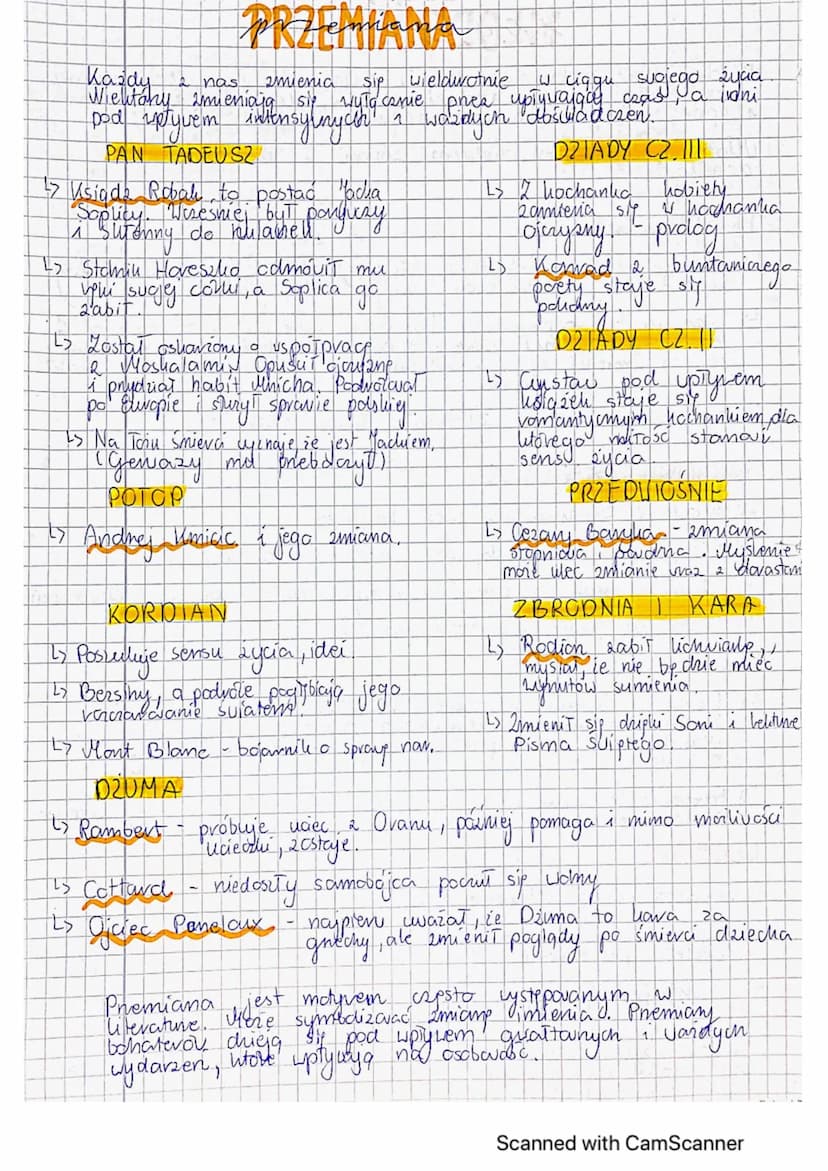 PRZEMIANA
przemiana
Każdy z nas zmienia się wielokrotnie w ciągu swojego życia.
Wielu zmieniają się wyłącznie przez upływający czas, a inni
pod wpływem intensywnych i ważnych doświadczeń.
PAN TADEUSZ
↳ Ksiądz Robak to postać Jacka
Soplicy. Wcześniej był porywczy
i skłonny do hulanek.
↳ Stolnik Horeszko odmówił mu
ręki swojej córki, a Soplica go
zabił.
↳ Został oskarżony o współpracę
z Moskalami. Opuścił ojczyznę
i przydział habit Mnicha. Podróżował
po Europie i służył sprawie polskiej.
↳ Na łożu śmierci wyznaje, że jest Jackiem.
(Gerwazy mu przebaczył)
POTOP
↳ Andrzej Kmicic i jego zmiana.
KORDIAN
↳ Poszukuje sensu życia, idei.
↳ Bezsilny, a podróże pogłębiają jego
rozczarowanie światem.
↳ Mont Blanc - bojownik o sprawę nar.
DZIADY CZ. III
↳ Z kochanka kobiety
zamienia się w kochanka
ojczyzny. - prolog
↳ Konrad z buntowniczego
poety staje się
pokorny.
DZIADY CZ. II
↳ Gustaw pod wpływem
książek staje się
romantycznym kochankiem, dla
którego miłość stanowi
sens życia.
PRZEDWIOŚNIE
↳ Cezary Baryka - zmiana
stopniowa i powolna. Myślenie
może ulec zmianie wraz z dorastan
ZBRODNIA I KARA
↳ Rodion zabił lichwiarkę,
myślał, że nie będzie mieć
wyrzutów sumienia.
↳ Zmienił się dzięki Soni i lekturze
Pisma Świętego.
DŻUMA
↳ Rambert - próbuje uciec z Oranu, później pomaga i mimo możliwości
ucieczki, zostaje.
↳ Cottard - niedoszły samobójca poczuł się wolny
↳ Ojciec Paneloux - najpierw uważał, że Dżuma to kara za
grzechy, ale zmienił poglądy po śmierci dziecka
Przemiana jest motywem często występowanym w
literaturze. Może symbolizować zmianę imienia. Przemiany
bohaterów dzieją się pod wpływem gwałtownych i ważnych
wydarzeń, które wpływają na osobowość.
Scanned with CamScanner